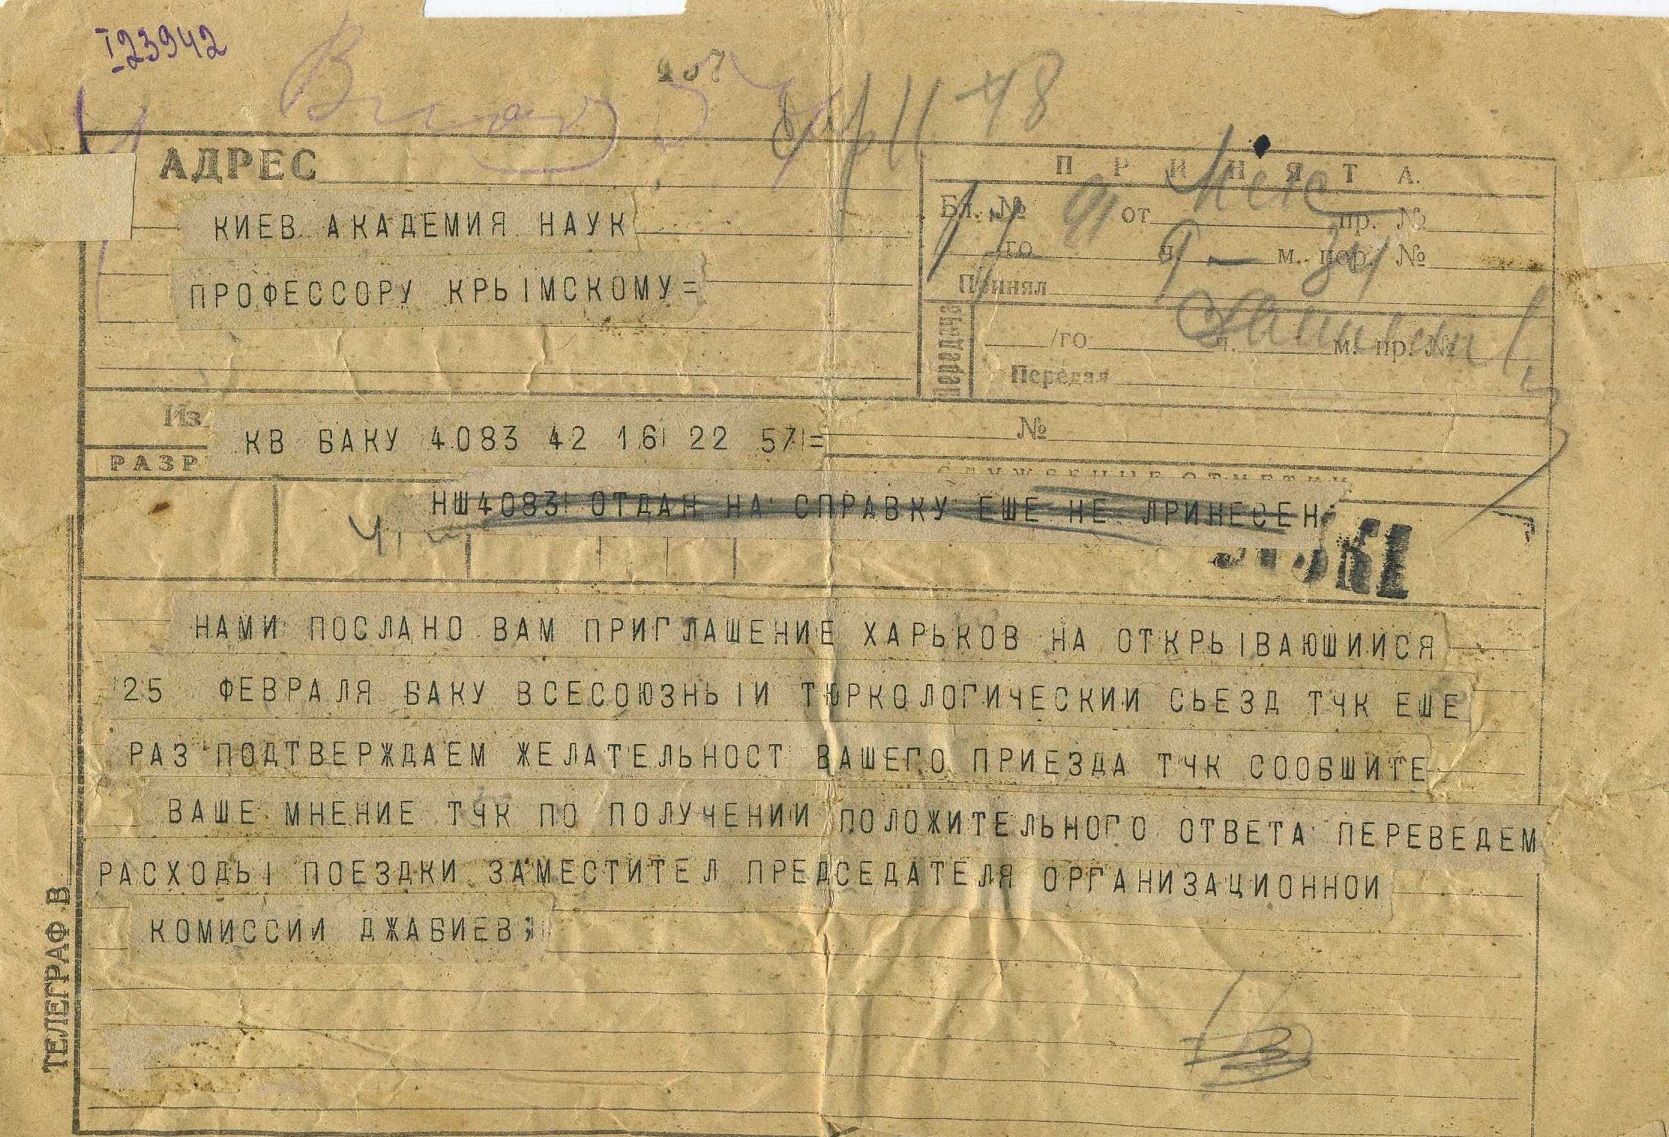 I23942
АДРЕС
КИЕВ АКАДЕМИЯ НАУК
ПРОФЕССОРУ КРЫМСКОМУ=
ПРИНЯТА.
Бл. № от пр. №
го ч. м. пор. №
Принял
Передача
/го ч. м. пр. №
Передал
Из КВ БАКУ 4083 42 16 22 57=
№
РАЗР
СЛУЖЕБНЫЕ ОТМЕТКИ
НШ4083 ОТДАН НА СПРАВКУ ЕШЕ НЕ ЛРИНЕСЕН
НАМИ ПОСЛАНО ВАМ ПРИГЛАШЕНИЕ ХАРЬКОВ НА ОТКРЫВАЮШИИСЯ
25 ФЕВРАЛЯ БАКУ ВСЕСОЮЗНЫИ ТЮРКОЛОГИЧЕСКИИ СЬЕЗД ТЧК ЕШЕ
РАЗ ПОДТВЕРЖДАЕМ ЖЕЛАТЕЛЬНОСТ ВАШЕГО ПРИЕЗДА ТЧК СООБШИТЕ
ВАШЕ МНЕНИЕ ТЧК ПО ПОЛУЧЕНИИ ПОЛОЖИТЕЛЬНОГО ОТВЕТА ПЕРЕВЕДЕМ
РАСХОДЫ ПОЕЗДКИ ЗАМЕСТИТЕЛ ПРЕДСЕДАТЕЛЯ ОРГАНИЗАЦИОННОИ
КОМИССИИ ДЖАБИЕВ
ТЕЛЕГРАФ В